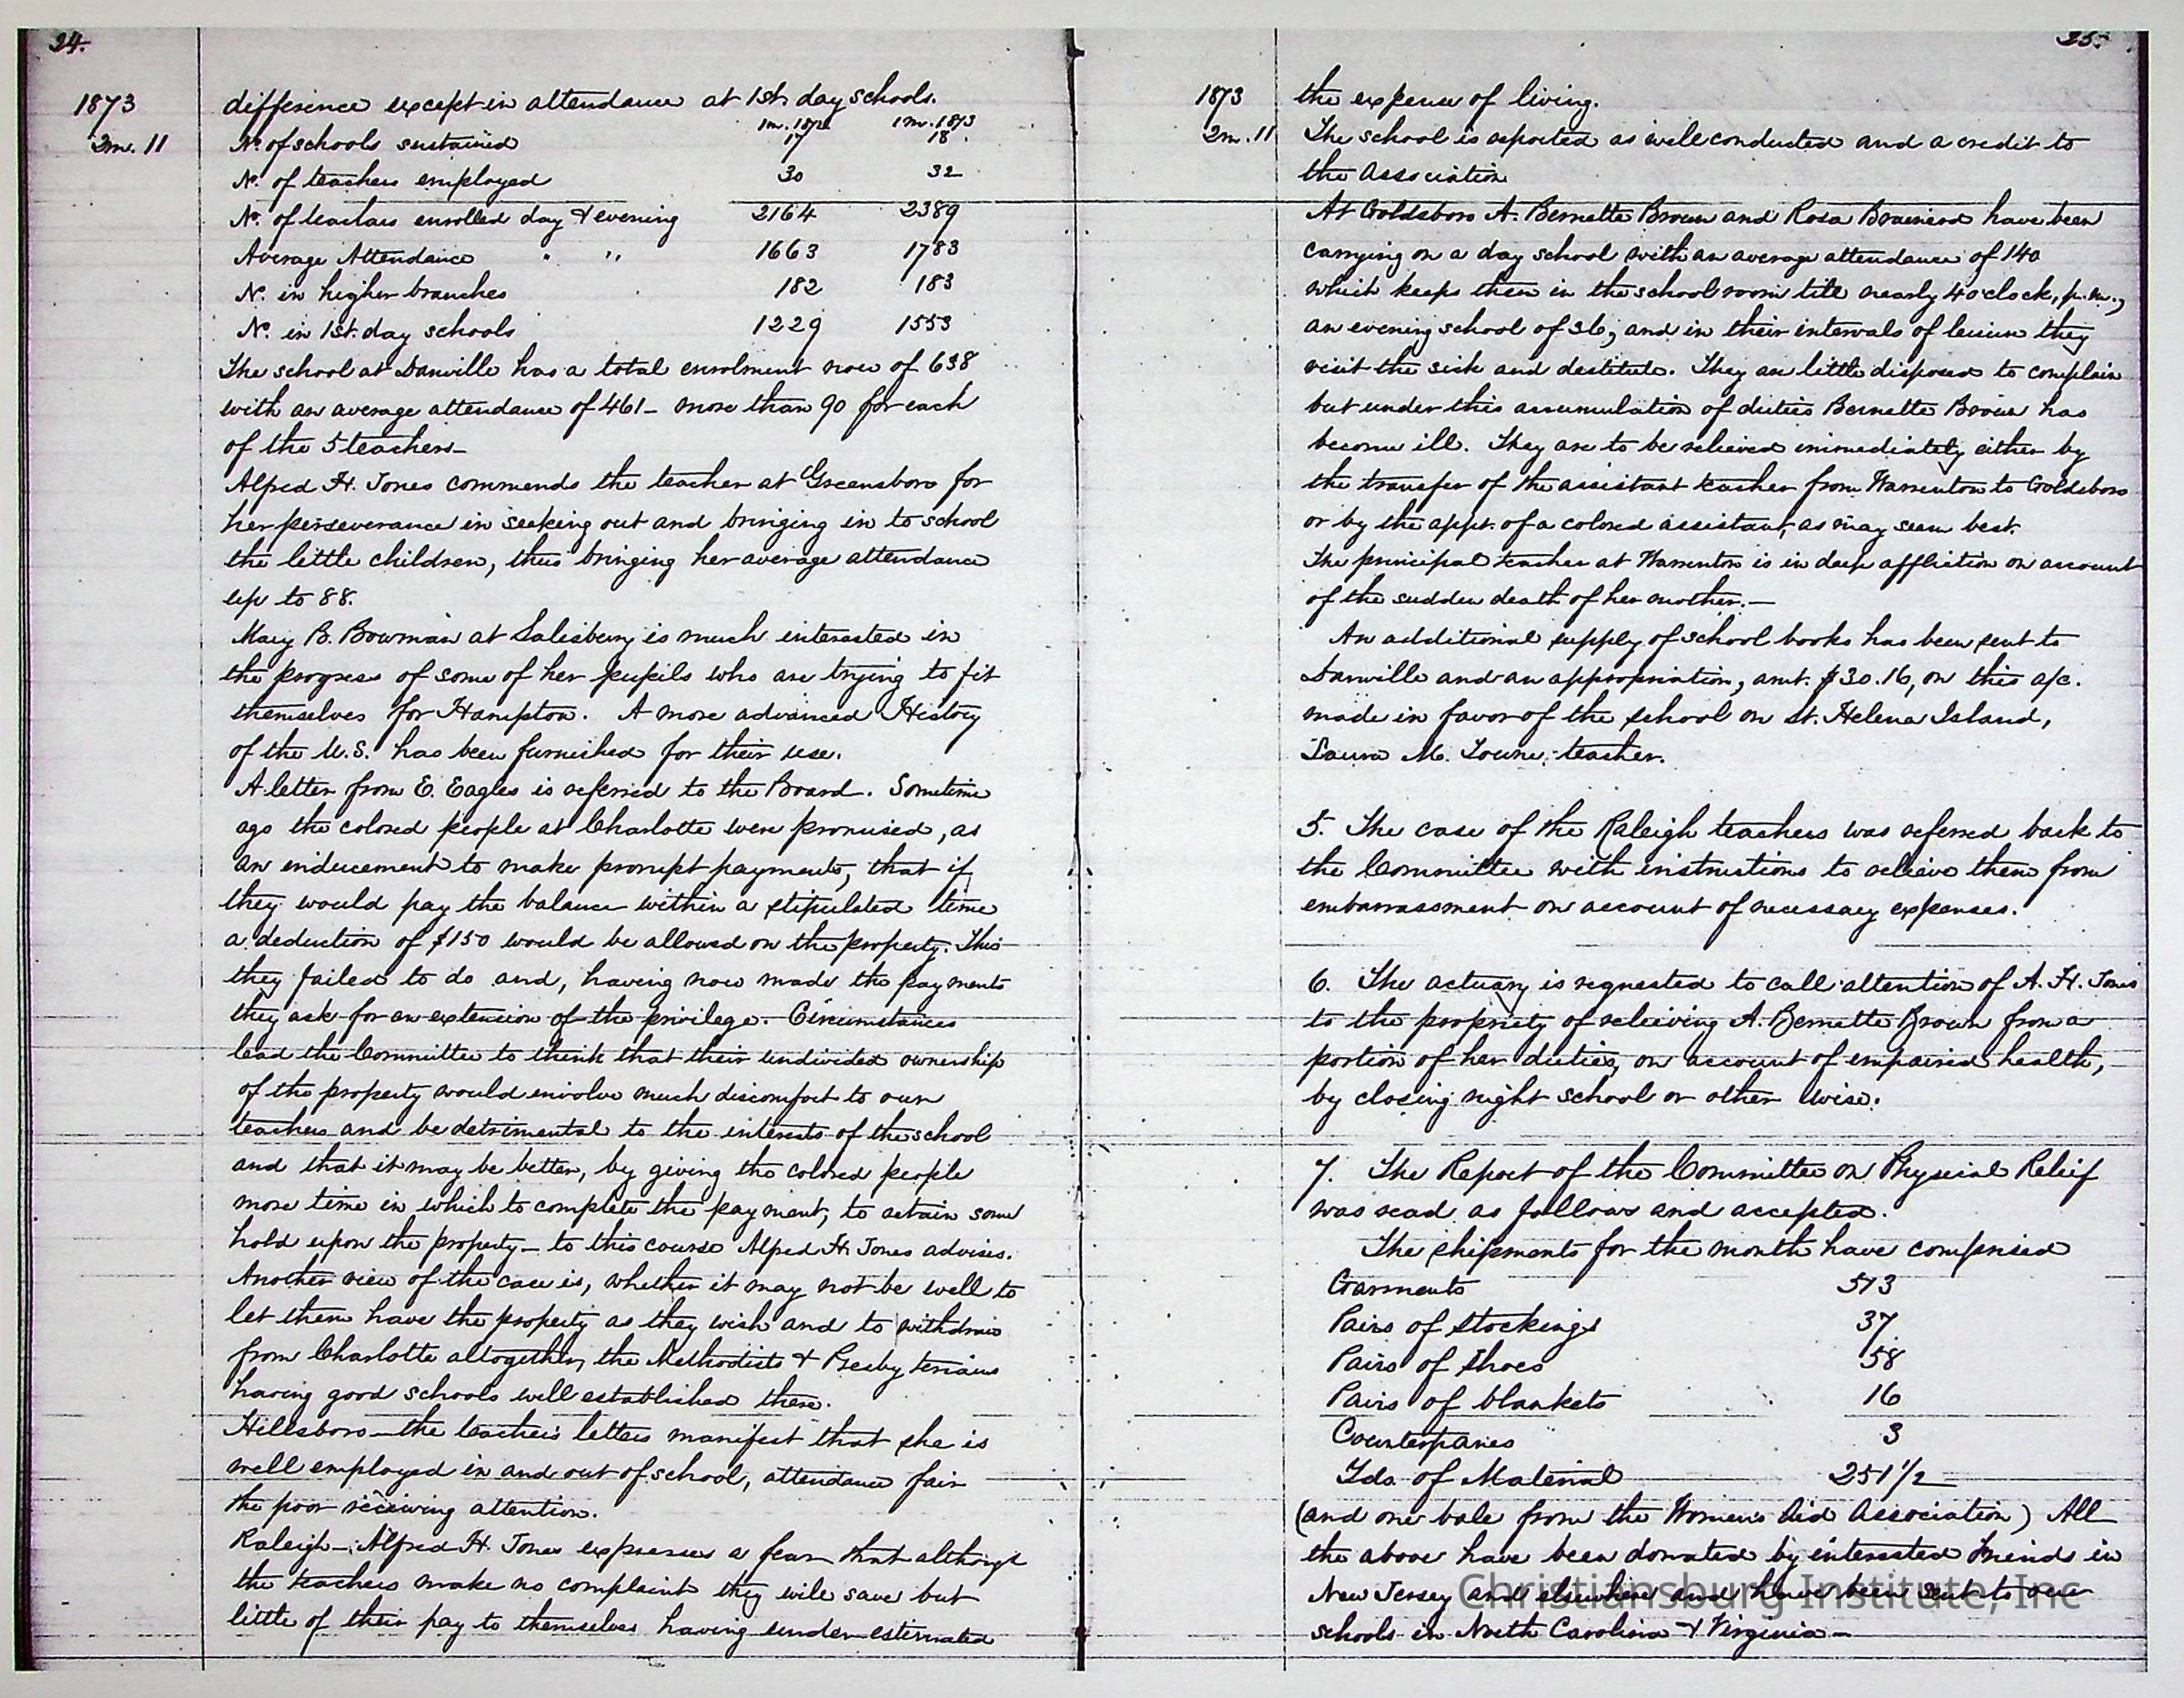 24.
1873
2m. 11
difference except in attendance at 1st day schools.
1m. 1872 1m. 1873
No. of schools sustained 17 18
No. of teachers employed 30 32
No. of teachers enrolled day & evening 2164 2389
Average Attendance " " 1663 1783
No. in higher branches 182 183
No. in 1st. day schools 1229 1553
The school at Danville has a total enrolment now of 638
with an average attendance of 461 - more than 90 for each
of the 5 teachers -
Alfred H. Jones commends the teacher at Greensboro for
her perseverance in seeking out and bringing in to school
the little children, thus bringing her average attendance
up to 88.
Mary B. Bowman at Salisbury is much interested in
the progress of some of her pupils who are trying to fit
themselves for Hampton. A more advanced History
of the U.S. has been furnished for their use.
A letter from E. Eagles is referred to the Board. Sometime
ago the colored people at Charlotte were promised, as
an inducement to make prompt payments, that if
they would pay the balance within a stipulated time
a deduction of $150 would be allowed on the property. This
they failed to do and, having now made the payments
they ask for an extension of the privilege. Circumstances
lead the Committee to think that their undivided ownership
of the property would involve much discomfort to our
teachers and be detrimental to the interests of the school
and that it may be better, by giving the colored people
more time in which to complete the payment, to retain some
hold upon the property - to this course Alfred H. Jones advises.
Another view of the case is, whether it may not be well to
let them have the property as they wish and to withdraw
from Charlotte altogether, the Methodists & Presbyterians
having good schools well established there.
Hillsboro - the teacher's letters manifest that she is
well employed in and out of school, attendance fair
the poor receiving attention.
Raleigh - Alfred H. Jones expresses a fear that although
the teachers make no complaint they will save but
little of their pay to themselves having under-estimated
25.
1873
2m. 11
the expense of living.
The school is reported as well conducted and a credit to
the Association
At Goldsboro A. Bernette Brown and Rosa Brainerd have been
carrying on a day school with an average attendance of 140
which keeps them in the school room till nearly 4 o'clock, p.m.,
an evening school of 36; and in their intervals of leisure they
visit the sick and destitute. They are little disposed to complain
but under this accumulation of duties Bernette Brown has
become ill. They are to be relieved immediately either by
the transfer of the assistant teacher from Warrenton to Goldsboro
or by the appt. of a colored assistant, as may seem best.
The principal teacher at Warrenton is in deep affliction on account
of the sudden death of her mother. -
An additional supply of school books has been sent to
Danville and an appropriation, amt. $30.16, on this a/c.
made in favor of the school on St. Helena Island,
Laura M. Towne, teacher.
5. The case of the Raleigh teachers was referred back to
the Committee with instructions to relieve them from
embarrassment on account of necessary expenses.
6. The actuary is requested to call attention of A. H. Jones
to the propriety of relieving A. Bernette Brown from a
portion of her duties, on account of empaired health,
by closing night school or other wise.
7. The Report of the Committee on Physical Relief
was read as follows and accepted.
The shipments for the month have comprised
Garments 513
Pairs of stockings 37
Pairs of shoes 58
Pairs of blankets 16
Counterpanes 3
Yds. of Material 251 1/2
(and one bale from the Women's Aid Association) All
the above have been donated by interested Friends in
New Jersey and elsewhere and have been sent to our
schools in North Carolina & Virginia -
Christiansburg Institute, Inc